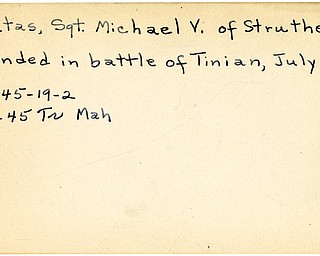 tas, Sgt. Michael V. of Struthe
nded in battle of Tinian, July
45-19-2
45 Tr Mah